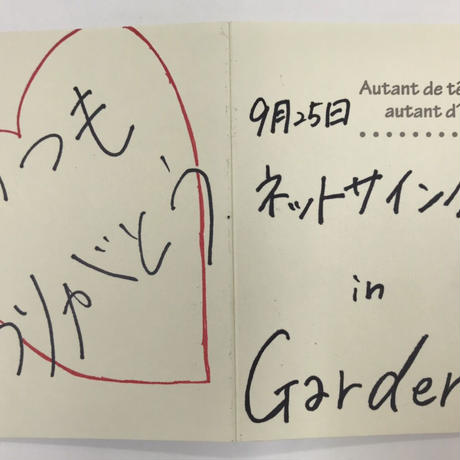 いつも
ありがとう
Autant de tê
autant d'
9月25日
ネットサイン
in
Garden